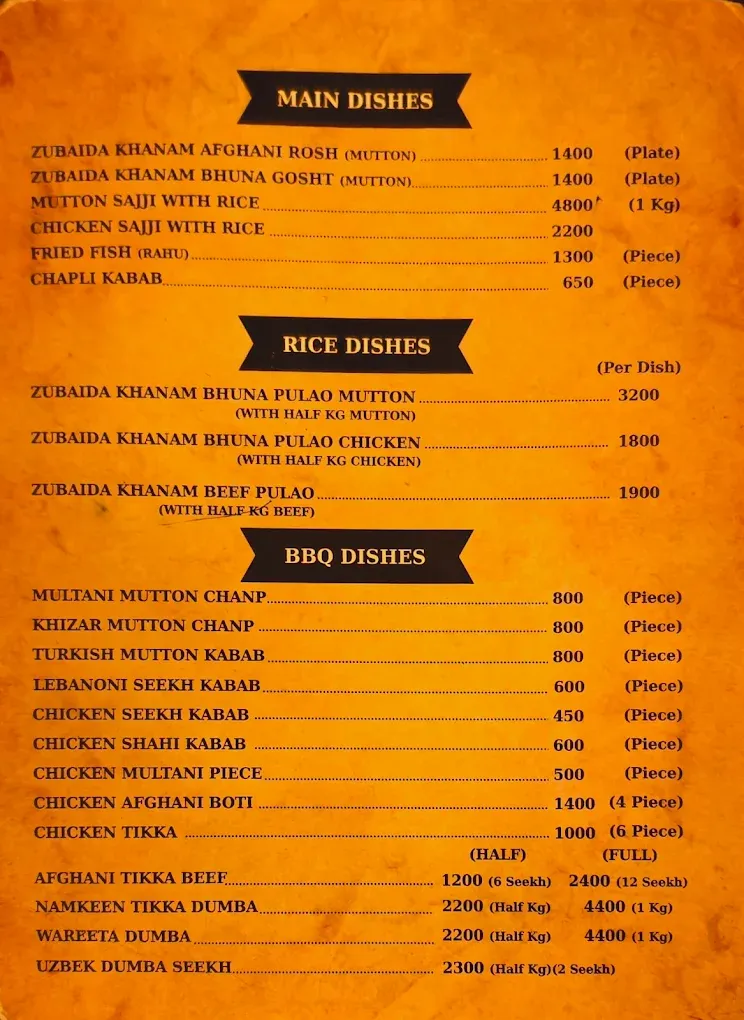 MAIN DISHES
ZUBAIDA KHANAM AFGHANI ROSH (MUTTON) 1400 (Plate)
ZUBAIDA KHANAM BHUNA GOSHT (MUTTON) 1400 (Plate)
MUTTON SAJJI WITH RICE 4800 (1 Kg)
CHICKEN SAJJI WITH RICE 2200
FRIED FISH (RAHU) 1300 (Piece)
CHAPLI KABAB 650 (Piece)
RICE DISHES
(Per Dish)
ZUBAIDA KHANAM BHUNA PULAO MUTTON 3200
(WITH HALF KG MUTTON)
ZUBAIDA KHANAM BHUNA PULAO CHICKEN 1800
(WITH HALF KG CHICKEN)
ZUBAIDA KHANAM BEEF PULAO 1900
(WITH HALF KG BEEF)
BBQ DISHES
MULTANI MUTTON CHANP 800 (Piece)
KHIZAR MUTTON CHANP 800 (Piece)
TURKISH MUTTON KABAB 800 (Piece)
LEBANONI SEEKH KABAB 600 (Piece)
CHICKEN SEEKH KABAB 450 (Piece)
CHICKEN SHAHI KABAB 600 (Piece)
CHICKEN MULTANI PIECE 500 (Piece)
CHICKEN AFGHANI BOTI 1400 (4 Piece)
CHICKEN TIKKA 1000 (6 Piece)
(HALF) (FULL)
AFGHANI TIKKA BEEF 1200 (6 Seekh) 2400 (12 Seekh)
NAMKEEN TIKKA DUMBA 2200 (Half Kg) 4400 (1 Kg)
WAREETA DUMBA 2200 (Half Kg) 4400 (1 Kg)
UZBEK DUMBA SEEKH 2300 (Half Kg)(2 Seekh)